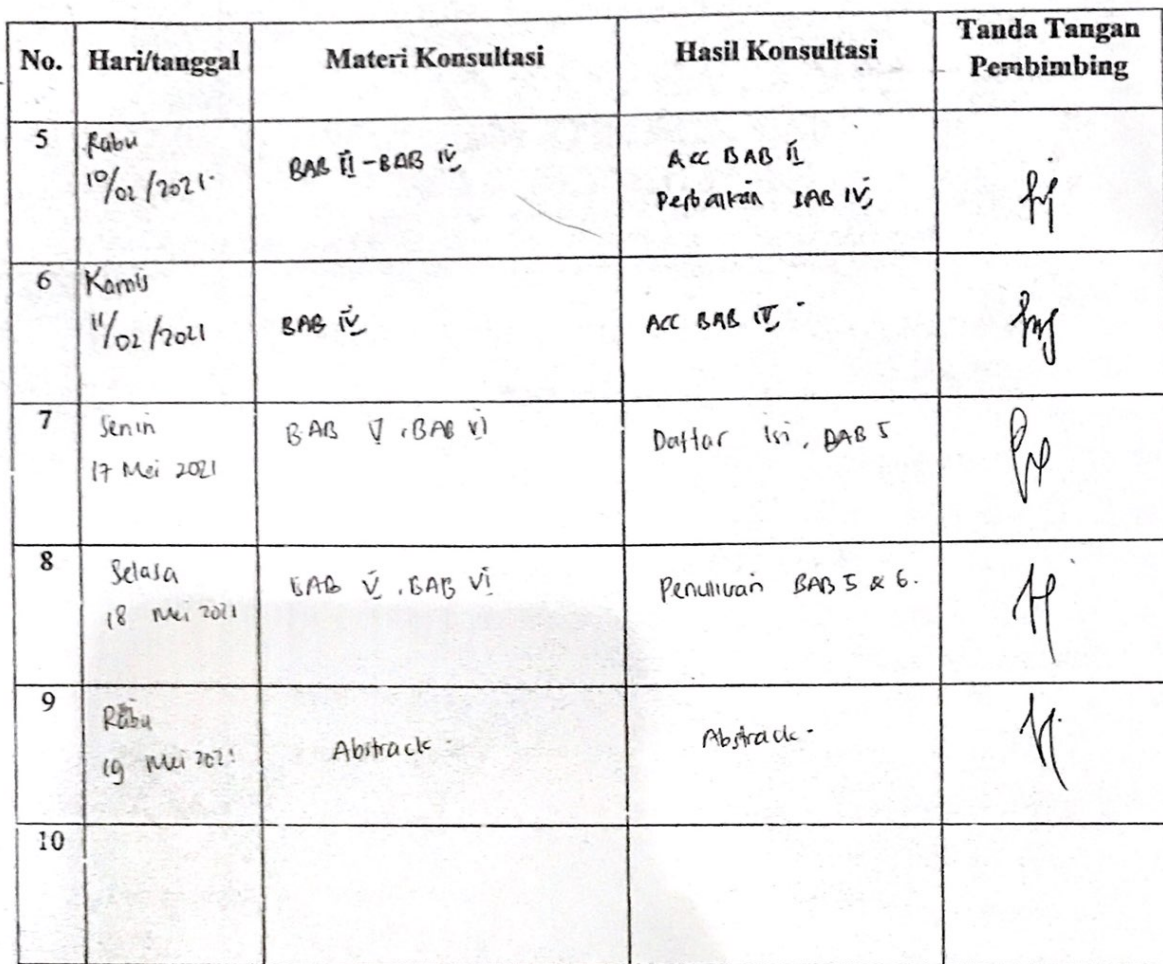 No. Hari/tanggal Materi Konsultasi Hasil Konsultasi Tanda Tangan Pembimbing
5 Rabu
10/02/2021. BAB II - BAB IV ACC BAB II
Perbaikan BAB IV
6 Kamis
11/02/2021 BAB IV ACC BAB IV
7 Senin BAB V, BAB VI Daftar Isi, BAB 5
17 Mei 2021
8 Selasa BAB V, BAB VI Penulisan BAB 5 & 6.
18 Mei 2021
9 Rabu
19 Mei 2021 Abstrack - Abstrack -
10